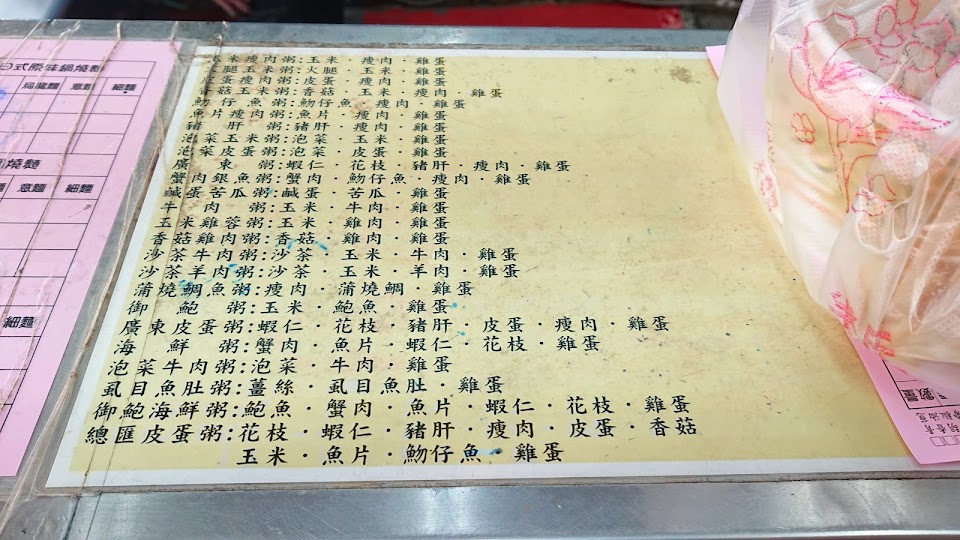 日式原味鍋燒麵
烏龍麵 意麵 細麵
鍋燒麵
意麵 細麵
細麵
玉米瘦肉粥:玉米·瘦肉·雞蛋
火腿玉米粥:火腿·玉米·雞蛋
皮蛋瘦肉粥:皮蛋·瘦肉·雞蛋
香菇玉米粥:香菇·玉米·瘦肉·雞蛋
魩仔魚粥:魩仔魚·瘦肉·雞蛋
魚片瘦肉粥:魚片·瘦肉·雞蛋
豬肝粥:豬肝·瘦肉·雞蛋
泡菜玉米粥:泡菜·玉米·雞蛋
泡菜皮蛋粥:泡菜·皮蛋·雞蛋
廣東粥:蝦仁·花枝·豬肝·瘦肉·雞蛋
蟹肉銀魚粥:蟹肉·魩仔魚·瘦肉·雞蛋
鹹蛋苦瓜粥:鹹蛋·苦瓜·雞蛋
牛肉粥:玉米·牛肉·雞蛋
玉米雞蓉粥:玉米·雞肉·雞蛋
香菇雞肉粥:香菇·雞肉·雞蛋
沙茶牛肉粥:沙茶·玉米·牛肉·雞蛋
沙茶羊肉粥:沙茶·玉米·羊肉·雞蛋
蒲燒鯛魚粥:瘦肉·蒲燒鯛·雞蛋
御鮑粥:玉米·鮑魚·雞蛋
廣東皮蛋粥:蝦仁·花枝·豬肝·皮蛋·瘦肉·雞蛋
海鮮粥:蟹肉·魚片·蝦仁·花枝·雞蛋
泡菜牛肉粥:泡菜·牛肉·雞蛋
虱目魚肚粥:薑絲·虱目魚肚·雞蛋
御鮑海鮮粥:鮑魚·蟹肉·魚片·蝦仁·花枝·雞蛋
總匯皮蛋粥:花枝·蝦仁·豬肝·瘦肉·皮蛋·香菇
玉米·魚片·魩仔魚·雞蛋
數量